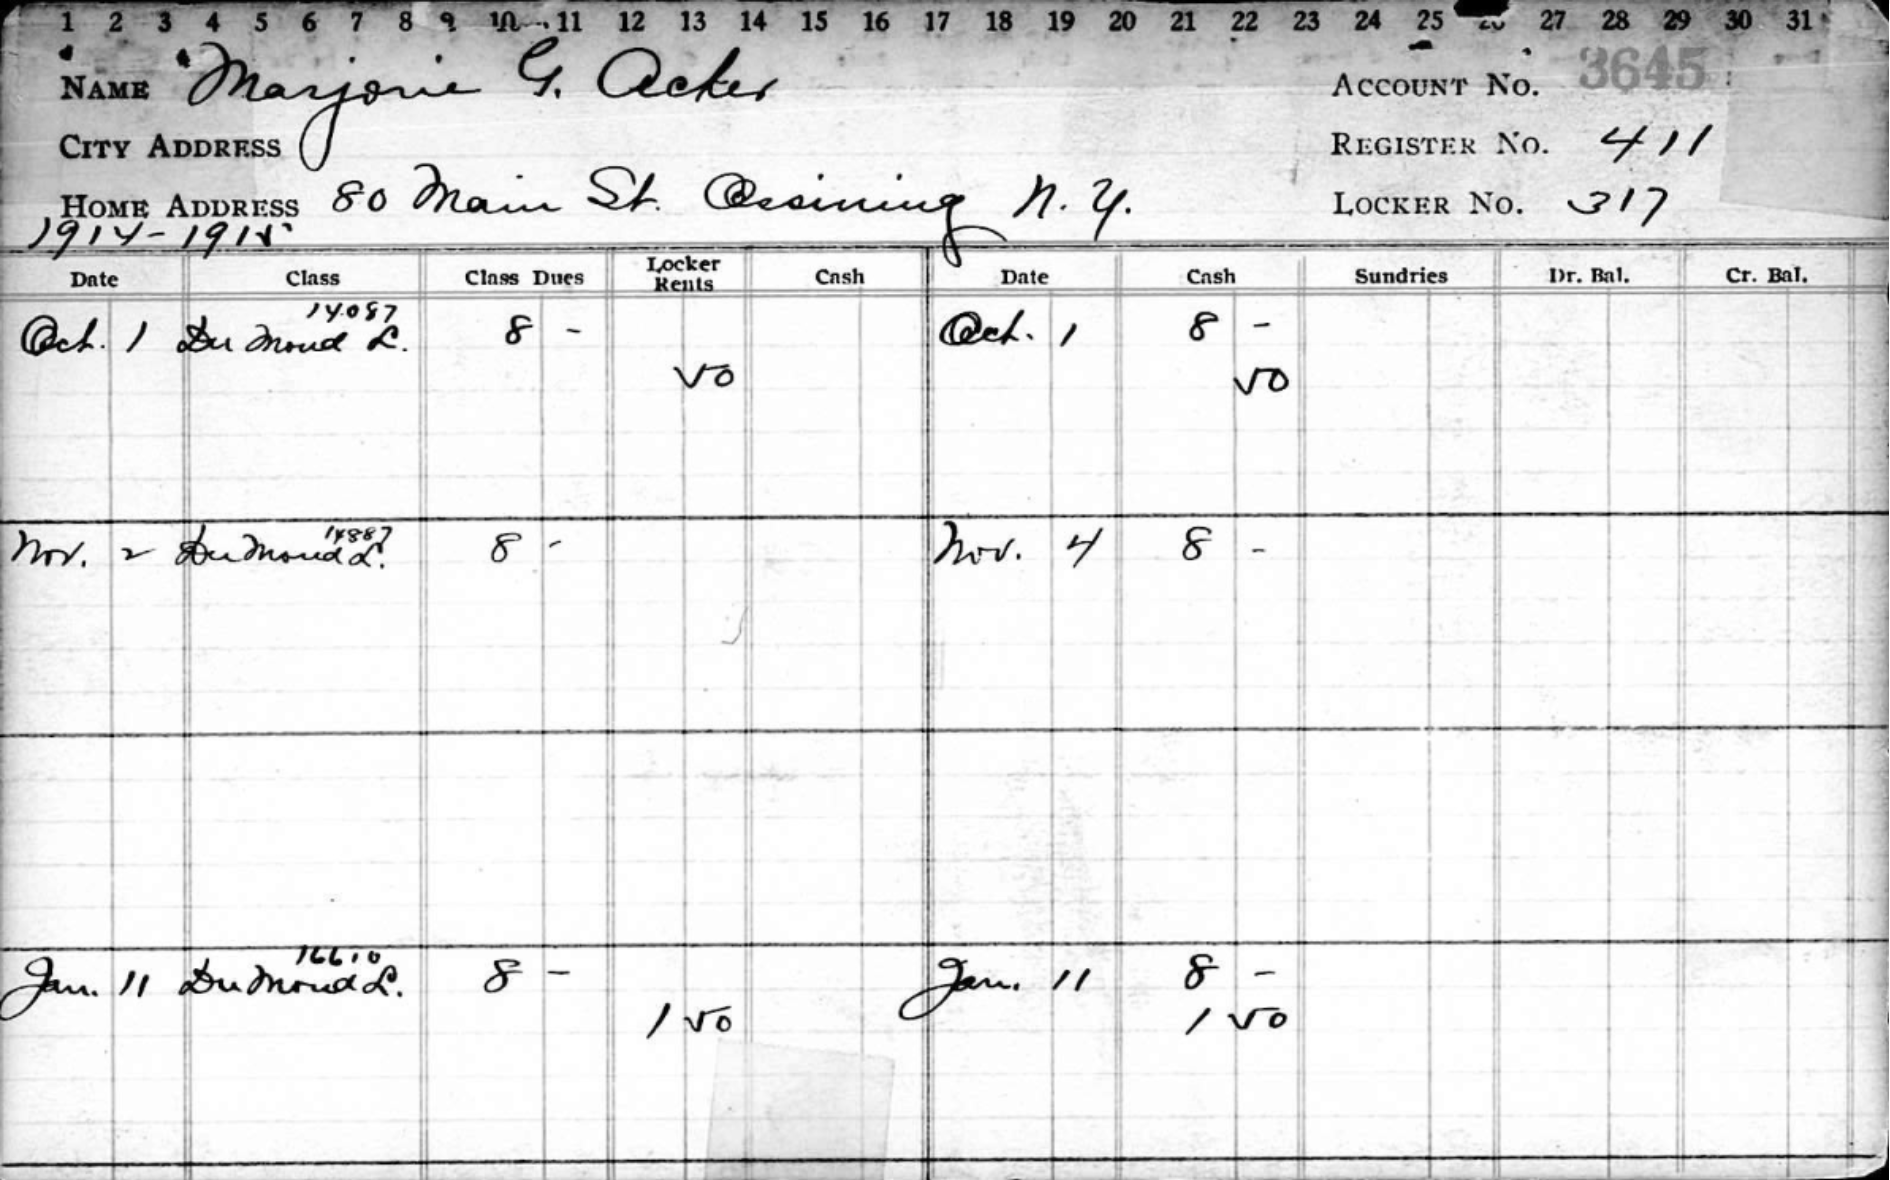 1 2 3 4 5 6 7 8 9 10 11 12 13 14 15 16 17 18 19 20 21 22 23 24 25 26 27 28 29 30 31
NAME Marjorie G. Acker ACCOUNT NO. 3645
CITY ADDRESS REGISTER NO. 411
HOME ADDRESS 80 Main St. Ossining N.Y. LOCKER NO. 317
1914-1915
Date Class Class Dues Locker Rents Cash Date Cash Sundries Dr. Bal. Cr. Bal.
14087
Oct. 1 Du Mond L. 8 - Oct. 1 8 -
50 50
14887
Nov. 2 Du Mond L. 8 - Nov. 4 8 -
16610
Jan. 11 Du Mond L. 8 - Jan. 11 8 -
1 50 1 50